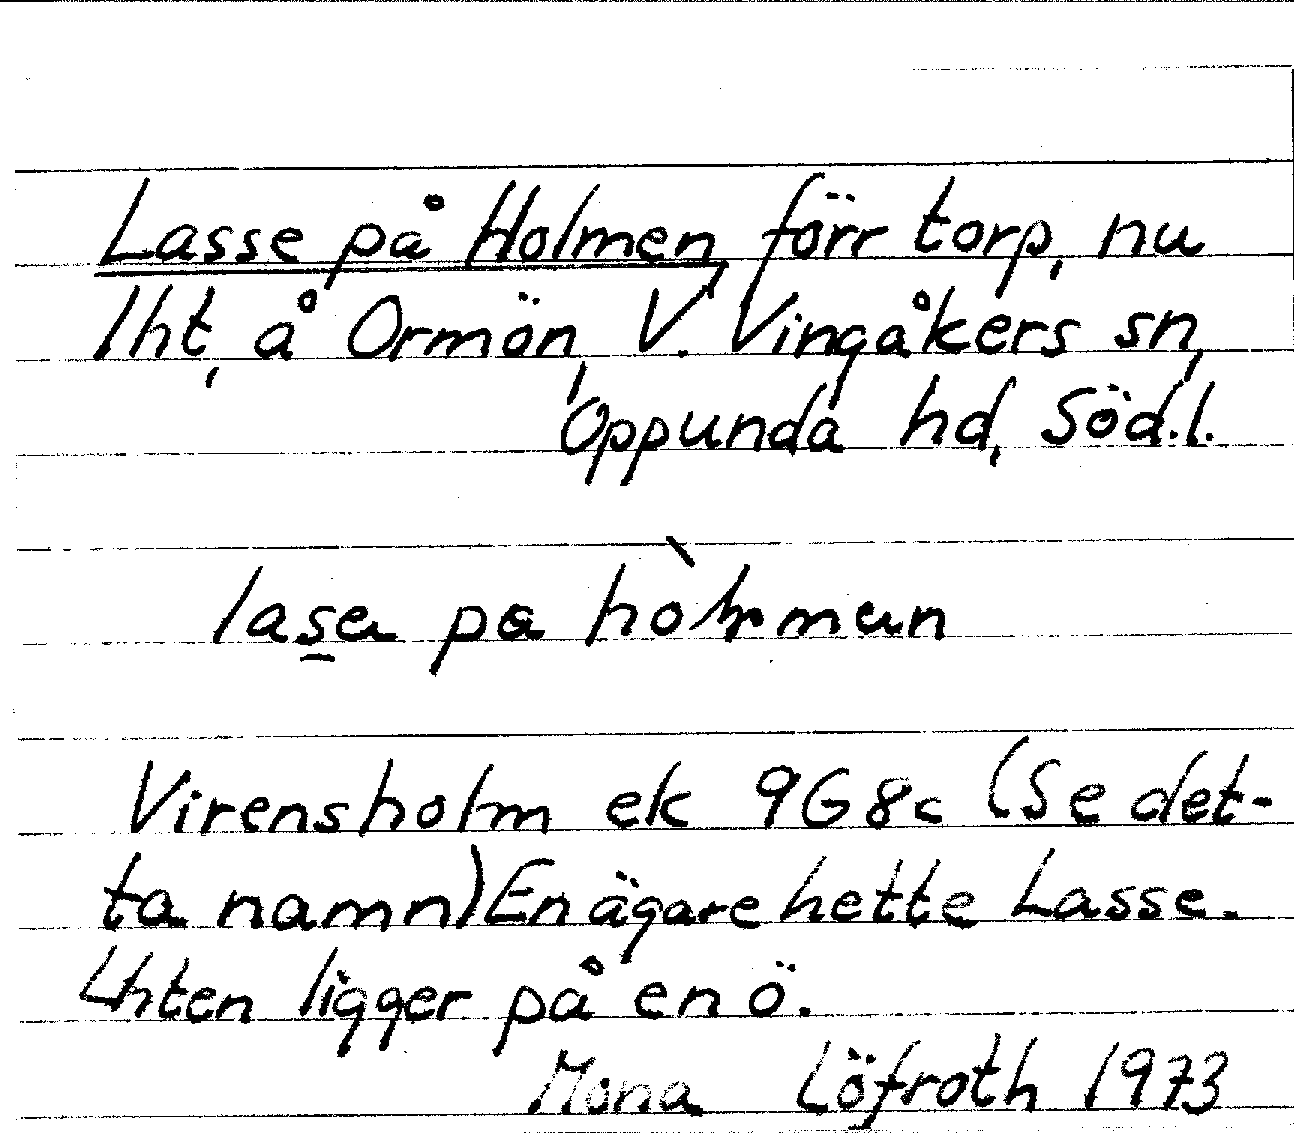 Lasse på Holmen, förr torp, nu
lht, å Ormön, V. Vingåkers sn,
Oppunda hd, Söd.l.
Virensholm ek 9G8c (Se det-
ta namn) En ägare hette Lasse.
Lhten ligger på en ö.
Mona Löfroth 1973